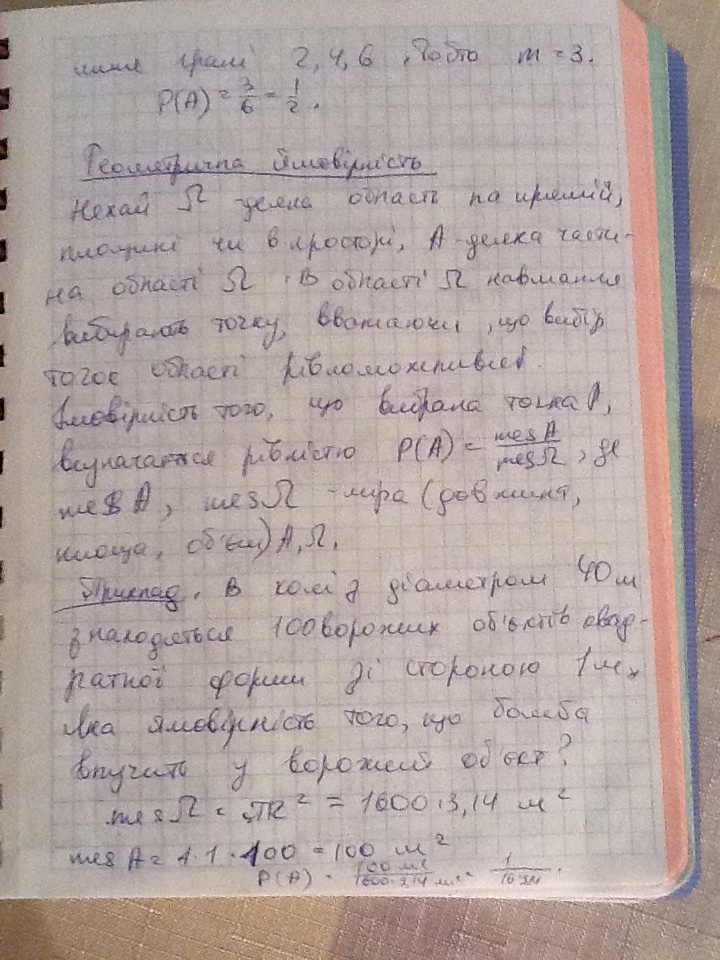 грані 2, 4, 6, тобто m = 3.
P(A) = 3/6 = 1/2.
Геометрична ймовірність
Нехай Ω деяка область на прямій,
площині чи в просторі, A - деяка части-
на області Ω. В області Ω навмання
вибирають точку, вважаючи, що вибір
точок області рівноможливий.
Ймовірність того, що вибрана точка
визначається рівністю P(A) = mes A/mes Ω, де
mes A, mes Ω - міра (довжина,
площа, об'єм) A, Ω.
Приклад. В колі з діаметром 40 м
знаходяться 100 ворожих об'єктів квад-
ратної форми зі стороною 1 м.
Яка ймовірність того, що бомба
влучить у ворожий об'єкт?
mes Ω = πR² = 1600·3,14 м²
mes A = 1·1·100 = 100 м²
P(A) = 100 м²/1600·3,14 м² =